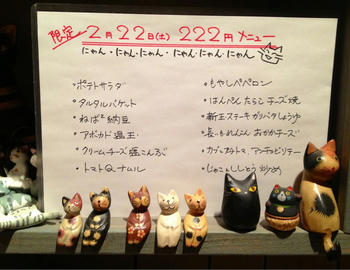 限定 2月22日(土) 222円メニュー
にゃん・にゃん・にゃん・にゃん・にゃん・にゃん
・ポテトサラダ
・タルタルバケット
・ねばねば納豆
・アボカド温玉
・クリームチーズ塩こんぶ
・トマトdeナムル
・もやしペペロン
・はんぺんたらこチーズ焼
・新玉ステーキガリバタしょうゆ
・長いもれんこんおかかチーズ
・カブとプチトマ、アンチョビソテー
・じゃことししとう炒め